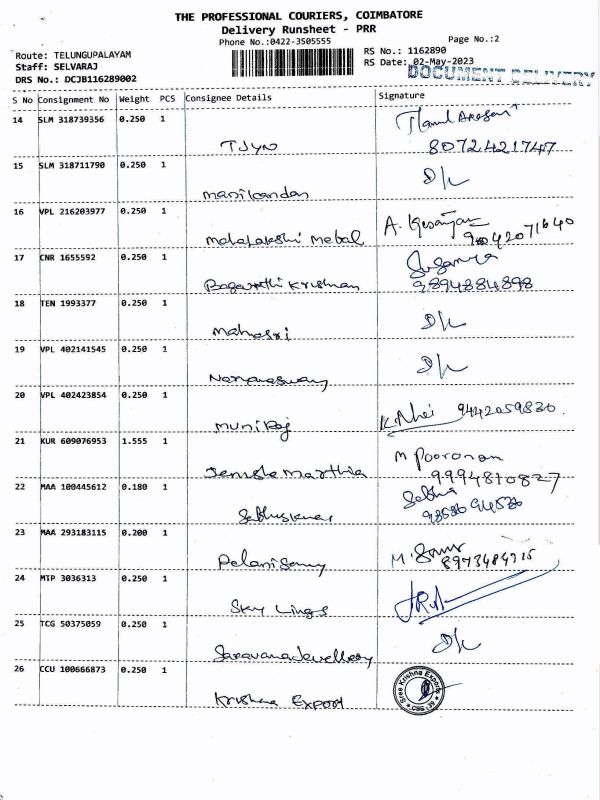 THE PROFESSIONAL COURIERS, COIMBATORE
Delivery Runsheet - PRR
Phone No.:0422-3505555
Page No.:2
Route: TELUNGUPALAYAM
RS No.: 1162890
Staff: SELVARAJ
RS Date: 02-May-2023
DRS No.: DCJB116289002
DOCUMENT DELIVERY
S No Consignment No Weight PCS Consignee Details Signature
14 SLM 318739356 0.250 1
TJYN 8072421747
15 SLM 318711790 0.250 1 D/L
manikandan
16 VPL 216203977 0.250 1 A.
Mahalakshi Mebal 9042071640
17 CNR 1655592 0.250 1 Suganya
Bagavathi Krishnan 9894884898
18 TEN 1993377 0.250 1 D/L
mahasri
19 VPL 402141545 0.250 1 D/L
Narayanasway
20 VPL 402423854 0.250 1 9442059830.
muniraj
21 KUR 609076953 1.555 1 M Pooranan
Marthia 9994810827
22 MAA 100445612 0.180 1
23 MAA 293183115 0.200 1 M.
Palanisamy 8973484715
24 MTP 3036313 0.250 1
Sky Lings
25 TCG 50375059 0.250 1 D/L
Saravana Jewellery
26 CCU 100666873 0.250 1 Sree Krishna Exports
Krishna Export